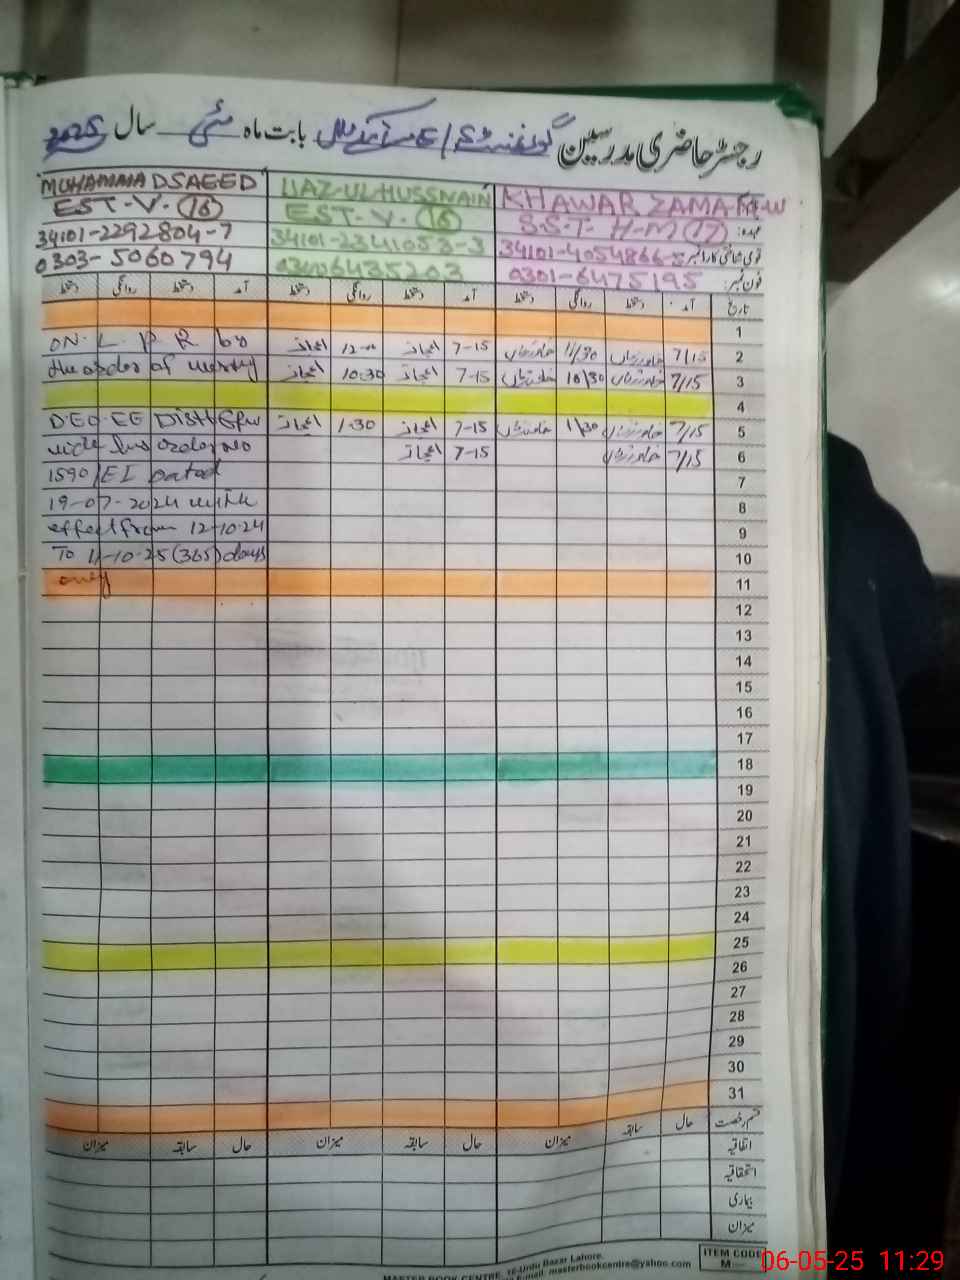 رجسٹر حاضری مدرسین گورنمنٹ بابت ماہ مئی سال 2025
MUHAMMAD SAEED
EST-V-(16)
34101-2292804-7
0303-5060794
IJAZ-UL-HUSSNAIN
EST-V-(16)
34101-2341053-3
03006435203
KHAWAR ZAMA
S.S.T H-M(17)
34101-4054866-5
0301-6475195
عہدہ:
قومی شناختی کارڈ نمبر
فون نمبر:
دستخط روانگی دستخط آمد دستخط روانگی دستخط آمد دستخط روانگی دستخط آمد تاریخ
1
ON. L. P R by اعجاز اعجاز 7-15 خاور زمان 11/30 خاور زمان 7/15 2
the order of worthy اعجاز 10:30 اعجاز 7-15 خاور زمان 10/30 خاور زمان 7/15 3
4
D.EO-EE Distt Grw اعجاز 1.30 اعجاز 7-15 خاور زمان 11/30 خاور زمان 7/15 5
vide his order No اعجاز 7-15 خاور زمان 7/15 6
1590/EI Dated 7
19-07-2024 with 8
effect from 12-10-24 9
To 11-10-25 (365) days 10
only 11
12
13
14
15
16
17
18
19
20
21
22
23
24
25
26
27
28
29
30
31
میزان سابقہ حال میزان سابقہ حال میزان سابقہ حال قسم رخصت
اتفاقیہ
استحقاقیہ
بیماری
میزان
MASTER BOOK CENTRE, 16-Urdu Bazar Lahore.
E-mail. masterbookcentre@yahoo.com
ITEM CODE
M
06-05-25 11:29